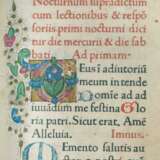 Nocturnum supradictum
cum lectionibus & respō
soriis primi nocturni dici
tur die mercurii & die sab
bati. Ad primam:
Deus i adiutoriū
meum intende
Domie ad ad
iuuādum me festina Glo
ria patri. Sicut erat. Amē
Alleluia. Imnus.
Emento salutis au